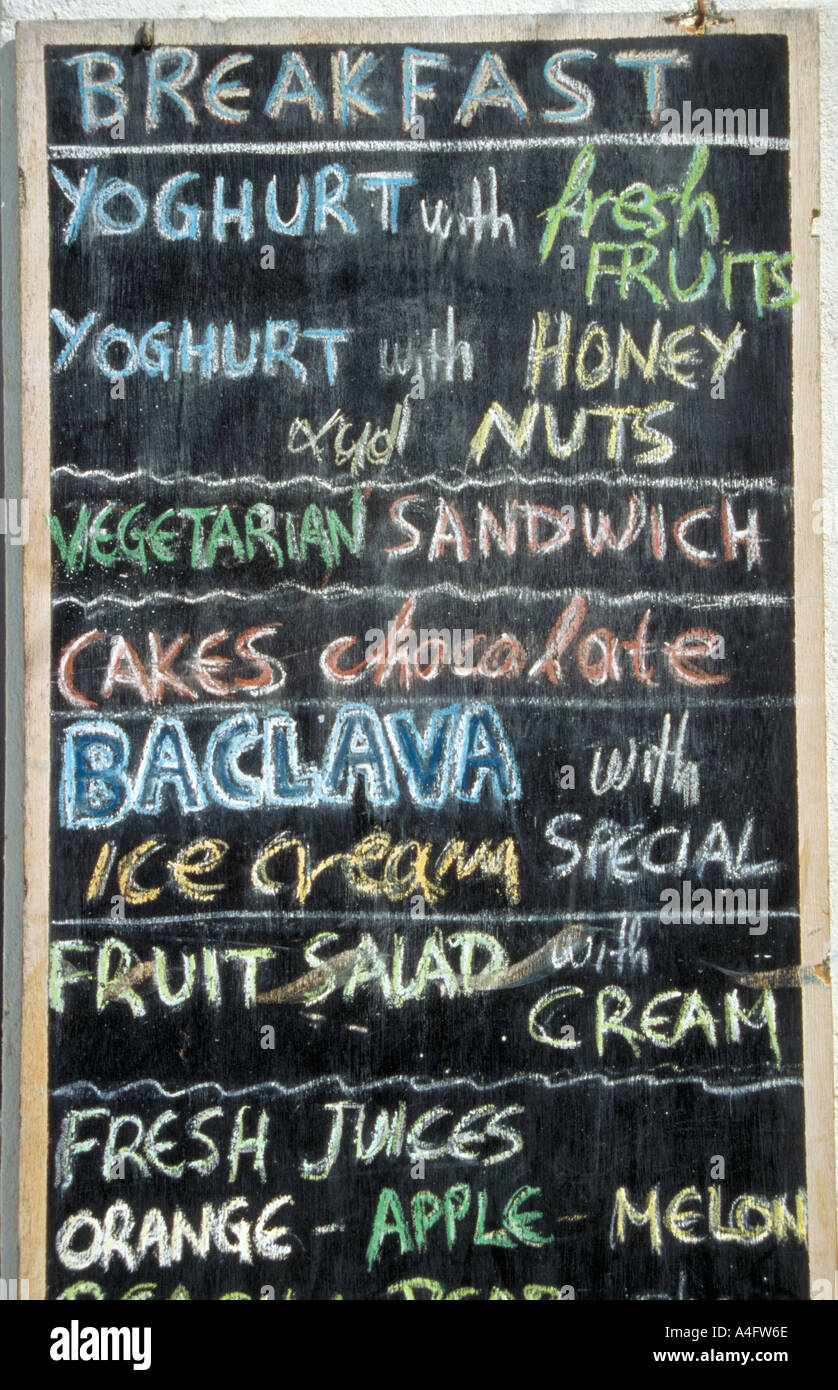 BREAKFAST
YOGHURT with fresh
FRUITS
YOGHURT with HONEY
αyd NUTS
VEGETARIAN SANDWICH
CAKES chocolate
BACLAVA with
ice cream SPECIAL
FRUIT SALAD with
CREAM
FRESH JUICES
ORANGE - APPLE - MELON
alamy
Image ID: A4FW6E
www.alamy.com